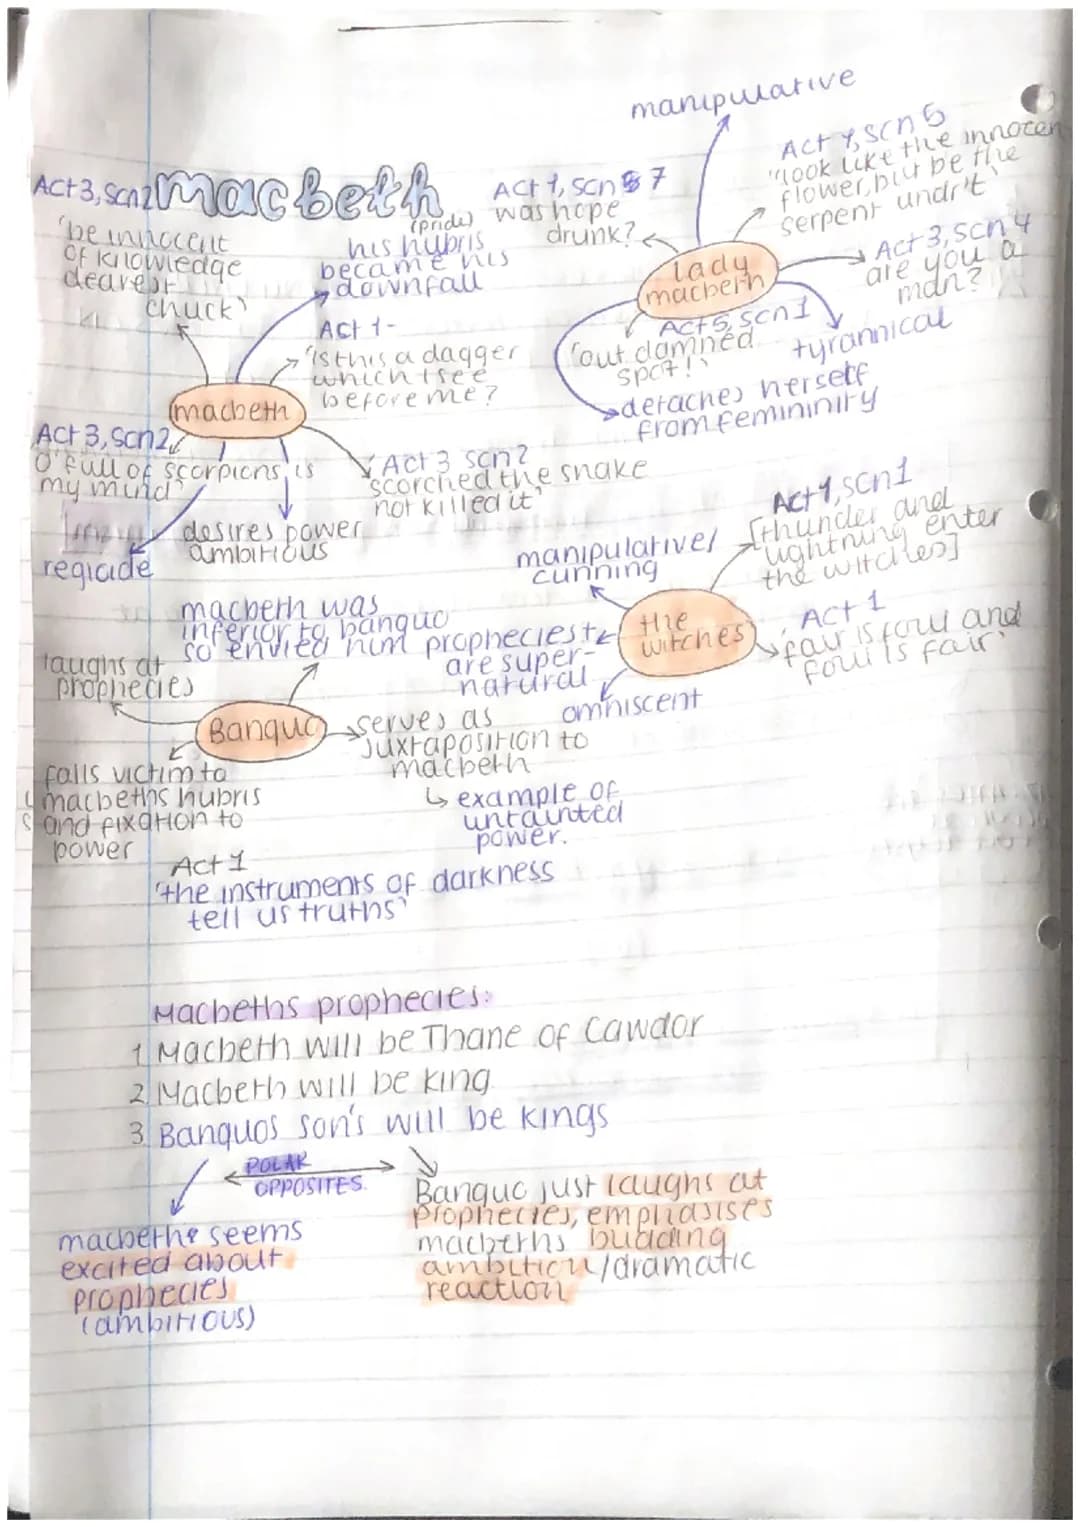 macbeth
Act 3, scn2
'be innocent
of knowledge
dearest
chuck'
(pride)
his hubris
became his
downfall
Act 1-
'is this a dagger
which I see
before me?
macbeth
Act 3, scn2
O' full of scorpions is
my mind'
regicide
desires power
ambitious
Act 3 scn2
scorched the snake
not killed it'
manipulative
Act 1, scn 7
was hope
drunk?
Act 1, scn 5
"look like the innocen
flower, but be the
serpent undr't'
lady
macbeth
Act 3, scn 4
are you a
man?
Act 5, scn 1
'out damned
spot!'
tyrannical
detaches herself
from femininity
Act 1, scn1
[thunder and
lightning enter
the witches]
manipulative/
cunning
the
witches
Act 1
'fair is foul and
foul is fair'
prophecies
are super-
natural
omniscent
macbeth was
inferior to banquo
so envied him
laughs at
prophecies
Banquo
serves as
juxtaposition to
macbeth
↳ example of
untainted
power.
falls victim to
macbeths hubris
and fixation to
power
Act 1
'the instruments of darkness
tell us truths'
Macbeths prophecies:
1. Macbeth will be Thane of Cawdor
2. Macbeth will be king
3. Banquos son's will be kings
POLAR
OPPOSITES
macbeth seems
excited about
prophecies
(ambitious)
Banquo just laughs at
prophecies, emphasises
macbeths building
ambition/dramatic
reaction